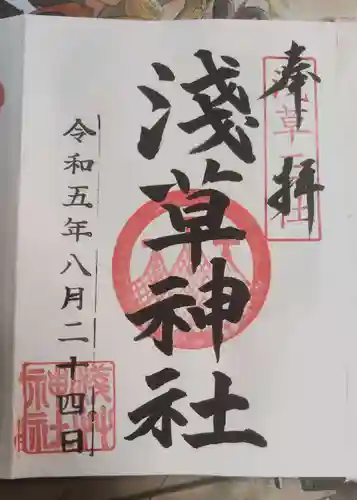 奉拝
浅草神社
淺草神社
令和五年八月二十四日
淺草神社